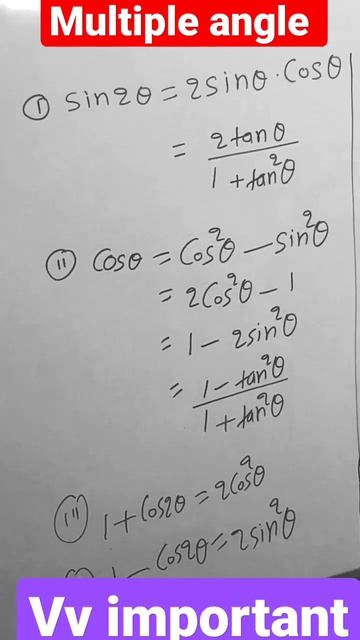 Multiple angle
(i) sin2θ = 2sinθ·Cosθ
= 2tanθ / 1+tan²θ
(ii) Cosθ = Cos²θ − Sin²θ
= 2Cos²θ − 1
= 1 − 2sin²θ
= 1−tan²θ / 1+tan²θ
(iii) 1+Cos2θ = 2Cos²θ
1 − Cos2θ = 2sin²θ
Vv important